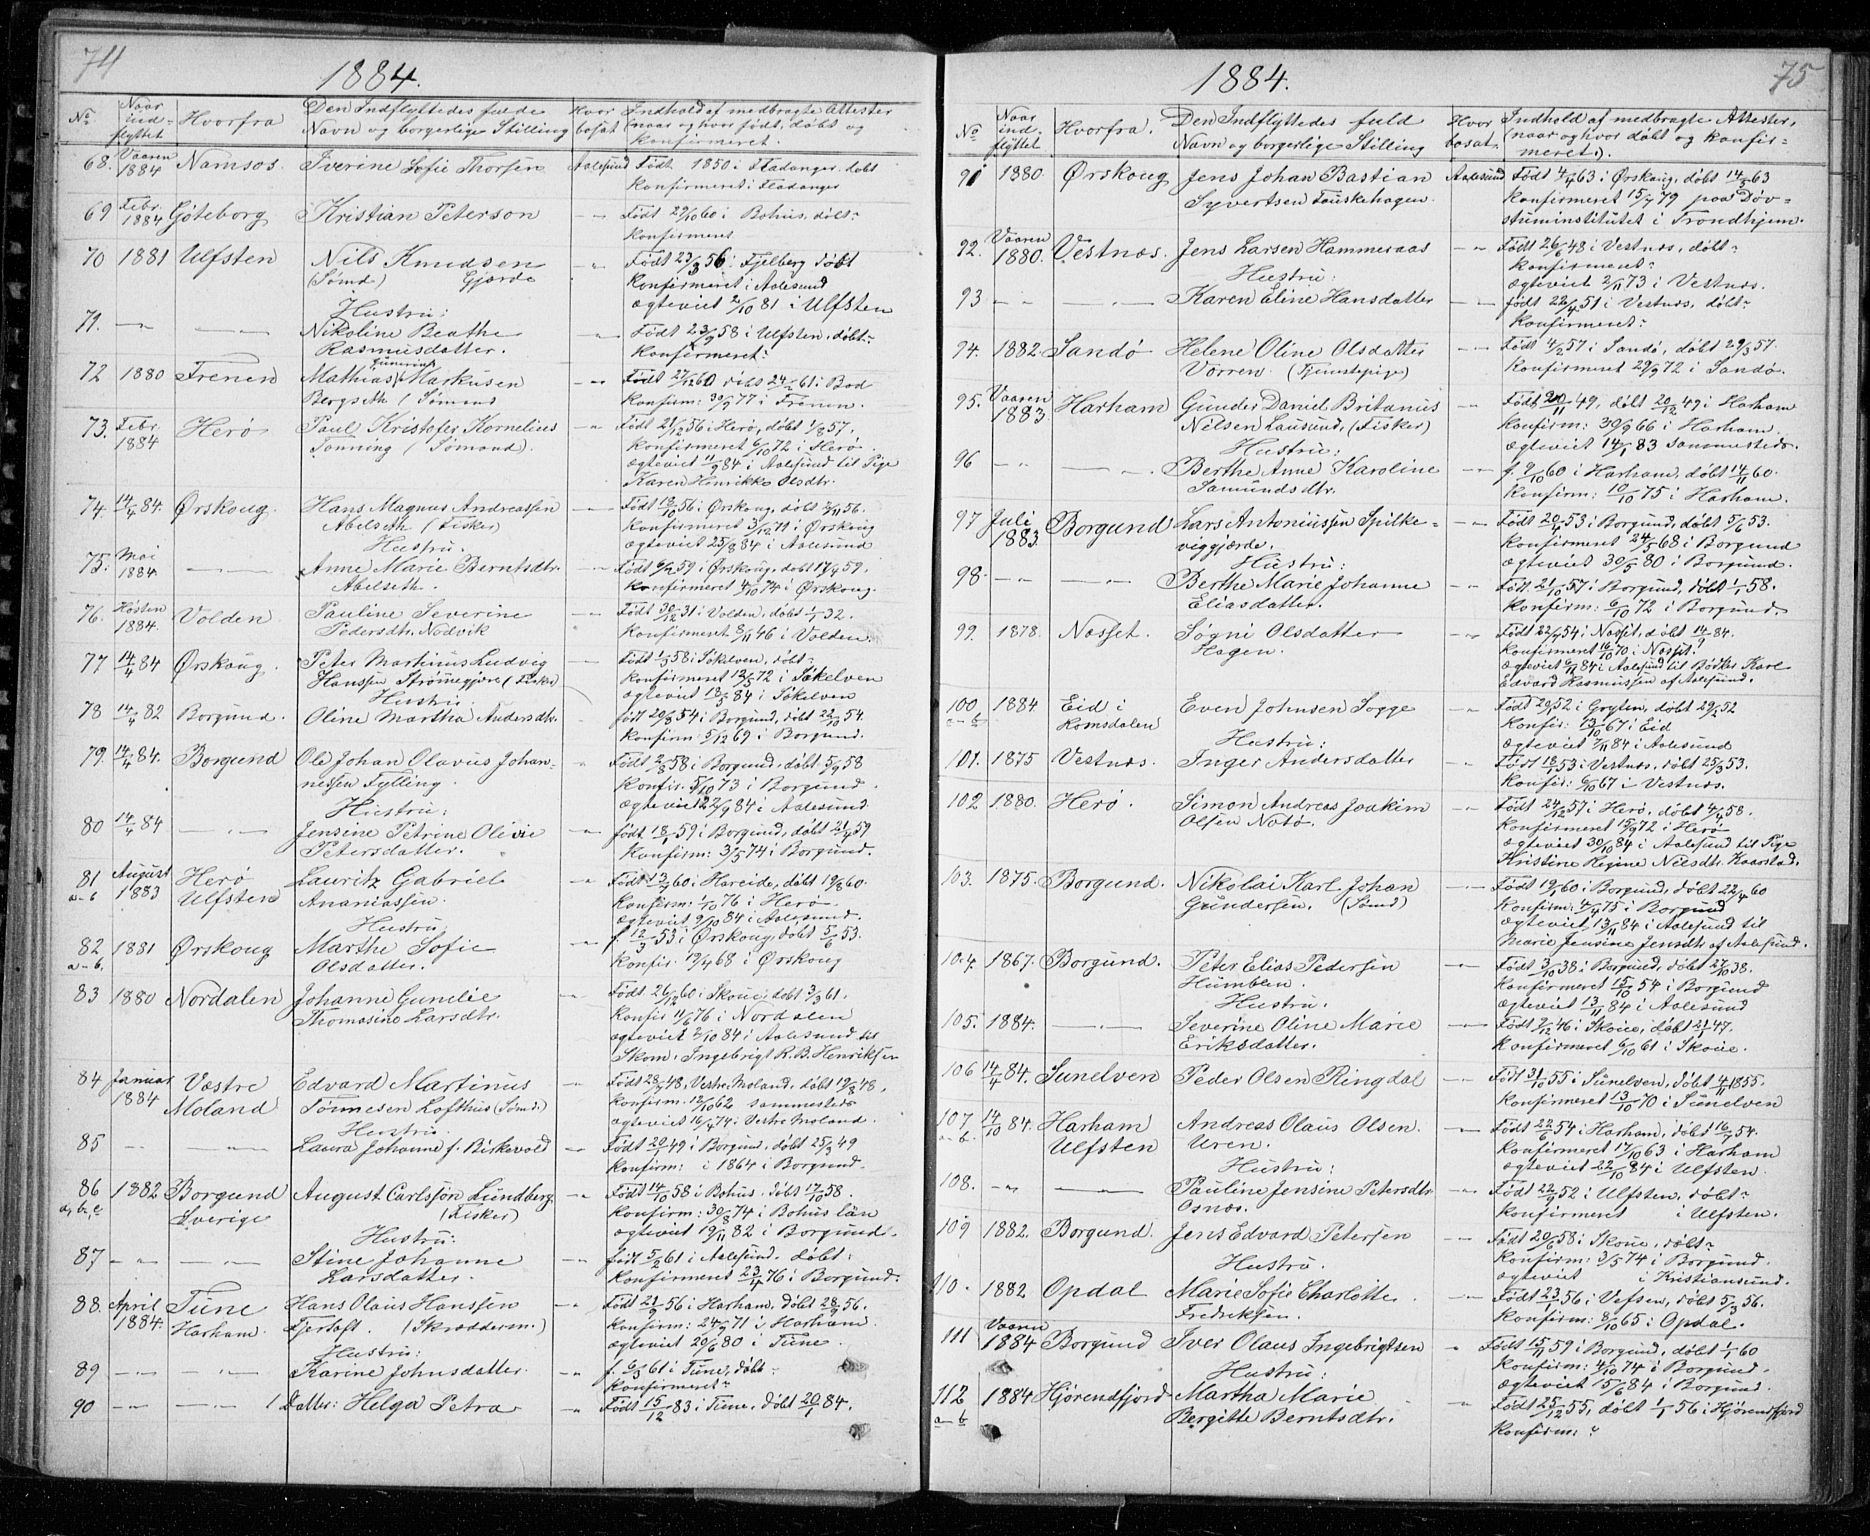 74
1884.
No
Naar ind-flyttet
Hvorfra
Den Indflyttedes fulde Navn og borgerlige Stilling
Hvor bosat
Indhold af medbragte Attester (naar og hvor født, døbt og konfirmeret.
68. Vaaren 1884 Namsos. Iverine Sofie Thorsen Aalesund Født 1850 i Fladanger. døbt
konfirmeret i Fladanger
69 Febr. 1884 Göteborg Kristian Peterson -"- Født 29/10 60 i Bohus, døbt-
konfirmeret
70 1881 Ulfsten Nils Knudsen -"- Født 23/3 56 i Fjelberg døbt
(Sømd) Gjørde konfirmeret i Aalesund
ægteviet 2/10 81 i Ulfsten
Hustru:
71. -"- -"- Nikoline Beathe -"- Født 23/9 58 i Ulfsten, døbt-
Rasmusdatter. konfirmeret?
72 1880 Frenen Mathias Markusen -"- Født 27/12 60 døbt 24/2 61 i Bod
Bergseth (Sømand konfirm: 30/9 77 i Frenen
73. Febr. 1884 Herø Paul Kristofer Kornelius -"- Født 21/12 56 i Herø, døbt 1/8 57.
Tonning (Sømand). konfirmeret 6/10 72 i Herø
ægteviet 11/9 84 i Aalesund til Pige
Karen Henrikke Olsdtr.
74. 14/4 84 Ørskoug. Hans Magnus Andreassen -"- Født 18/10 56 i Ørskoug, døbt 2/11 56.
Abelseth (Fisker) konfirmeret 3/12 71 i Ørskoug
Hustru. ægteviet 25/8 84 i Aalesund
75. Mai 1884. -"- Anne Marie Berntsdtr. -"- Født 9/2 59 i Ørskoug, døbt 17/4 59.
Abelseth. konfirmeret 4/10 74 i Ørskoug.
76. Høsten 1884. Volden Pauline Severine -"- Født 30/12 31 i Volden, døbt 1/1 32.
Pedersdtr. Nodvik konfirmeret 8/11 46 i Volden.
77 14/4 84 Ørskoug. Peter Martinus Ludvig -"- Født 1/5 58 i Søkelven, døbt-
Hanssen Strømegjøre (Fisker) konfirmeret 12/5 72 i Søkelven
Hustru: ægteviet 18/5 84 i Søkelven
78 14/4 82 Borgund. Oline Martha Andersdtr. født 29/8 54 i Borgund, døbt 22/10 54.
konfirm 5/12 69 i Borgund.
79. 14/4 84. Borgund Ole Johan Olavus Johan- -"- Født 2/8 58 i Borgund, døbt 5/9 58
nesen Fylling. konfir. 5/10 73 i Borgund.
Hustru: ægteviet 22/9 84 i Aalesund
80 14/4 84 -"- Jensine Petrine Olivie -"- født 18/1 59 i Borgund, døbt 21/4 59
Petersdatter. konfirm: 3/5 74 i Borgund.
81 a-b August 1883 Herø Ulfsten Lauritz Gabriel -"- Født 13/7 60 i Hareide, døbt 19/8 60.
Ananiassen. konfirm: 1/10 76 i Herø
Hustru: ægteviet 9/10 84 i Aalesund.
82 a-b. 1881 Ørskoug Marthe Sofie -"- f. 12/3 53 i Ørskoug, døbt 5/6 53.
Olsdatter. konfir. 19/4 68 i Ørskoug
83 1880 Nordalen Johanne Gunelie -"- Født 26/12 60 i Skoue, døbt 3/3 61.
Thomasine Larsdtr. konfir 11/6 76 i Nordalen
ægteviet 2/10 84 i Aalesund til
Skom. Ingebrigt R. B. Henriksen
84 Januar 1884 Væstre Moland Edvard Martinus -"- Født 28/7 48, Vestre Moland, døbt 19/8 48.
Tønnesen Lofthus (Sømd.) konfirm. 12/10 62 sammesteds
Hustru. ægteviet 16/4 74 i Vestre Moland.
85 -"- -"- Laura Johanne f. Biskevold -"- Født 20/1 49 i Borgund, døbt 25/3 49
konfirm: i 1864 i Borgund.
86 a,b,c 1882 Borgund Sverige August Carlsson Lundberg -"- Født 14/10 58 i Bohus. døbt 17/10 58.
(Fisker) konfirm: 30/8 74 i Bohus län
Hustru: ægteviet 19/11 82 i Borgund.
87 -"- -"- Stine Johanne -"- født 5/2 61 i Aalesund. døbt:
Larsdatter. konfirmeret 23/4 76 i Borgund.
88. April 1884. Tune Harham. Hans Olaus Hanssen -"- Født 21/9 56 i Harham, døbt 28/9 56.
Fjertoft. (Skrædderm.) konfirm: 24/9 71 i Harham.
Hustru: ægteviet 20/6 80 i Tune.
89 -"- -"- Karine Johnsdatter. -"- f. 6/3 61 i Tune, døbt-
konfirmeret?
90 -"- -"- Datter: Helga Petra -"- Født 15/12 83 i Tune, døbt 20/1 84.
75
1884.
No
Naar ind-flyttet
Hvorfra.
Den Indflyttedes fuld Navn og borgerlige Stilling
Hvor bosat
Indhold af medbragte Attester, (naar og hvor døbt og konfir-meret).
91 1880 Ørskoug Jens Johan Bastian Aalesund Født 4/4 63 i Ørskoug, døbt 14/5 63
Syvertsen Fauskehagen. konfirmeret 15/7 79 paa Døv-
stuminstitutet i Trondhjem.
92. Vaaren 1880. Vestnæs. Jens Larsen Hammeraas -"- Født 26/6 48 i Vestnæs, døbt-
Hustru: konfirmeret-
ægteviet 2/11 73 i Vestnæs.
93 -"- -"- Karen Eline Hansdatter -"- født 22/4 51 i Vestnæs, døbt-
konfirmeret:
94. 1882. Sandø Helene Oline Olsdatter -"- Født 4/2 57 i Sandø, døbt 29/3 57.
Vorren. (Tjenestepige) konfirmeret 29/9 72 i Sandø.
95. Vaaren 1883. Harham Gunder Daniel Britanus -"- Født 20/11 49, døbt 20/12 49 i Harham
Nilsen Lausund, (Fisker) konfirm: 30/9 66 i Harham.
Hustru: ægteviet 14/1 83 sammesteds.
96 -"- -"- Berthe Anne Karoline -"- f. 9/10 60 i Harham, døbt 14/11 60.
Samundsdtr. konfirm: 10/10 75 i Harham.
97 Juli 1883 Borgund Lars Antoniussen Spilke- -"- Født 20/4 53 i Borgund, døbt 5/6 53.
viggjærde. konfirmeret 24/5 68 i Borgund
Hustru: ægteviet 30/5 80 i Borgund.
98. -"- -"- Berthe Marie Johanne -"- Født 21/10 57 i Borgund, døbt 1/1 58.
Eliasdatter. konfirm: 6/10 72 i Borgund.
99. 1878. Næsset. Søgni Olsdatter -"- Født 22/7 54 i Næsset, døbt 14/9 84.
Hagen. konfirmeret 16/10 70 i Næsset.
ægteviet 6/11 84 i Aalesund til Bødker Karl
Edvard Rasmussen af Aalesund.
100 a-b 1884 Eid i Romsdalen Even Johnsen Sogge -"- Født 20/1 52 i Gryten, døbt 29/2 52
konfir: 13/10 67 i Eid
Hustru: ægteviet 7/11 84 i Aalesund
101. 1875 Vestnæs. Inger Andersdatter -"- Født 18/1 53 i Vestnæs, døbt 25/3 53.
konfir: 6/10 67 i Vestnæs.
102 1880. Herø. Simon Andreas Joakim -"- Født 24/12 57 i Herø, døbt 4/4 58.
Olsen Notø. konfirmeret 15/9 72 i Herø
ægteviet 30/10 84 i Aalesund til Pige
Kristine Regine Nilsdtr. Kaarstad.
103. 1875. Borgund. Nikolai Karl Johan -"- Født 19/1 60 i Borgund, døbt 22/4 60
Gundersen. (Sømd) konfirm: 4/4 75 i Borgund
ægteviet 13/11 84 i Aalesund til
Marie Jensine Jensdtr. af Aalesund.
104. 1867. Borgund. Peter Elias Pedersen -"- Født 3/10 38 i Borgund, døbt 27/10 38.
Humblen. konfirmeret 15/10 54 i Borgund
Hustru. ægteviet 13/11 84 i Aalesund
105. 1884. -"- Severine Oline Marie -"- Født 9/12 46 i Skoue, døbt 21/1 47.
Eriksdatter. konfirmeret 6/10 61 i Skoue.
106 14/4 84. Sunelven Peder Olsen Ringdal -"- Født 31/10 55 i Sunelven, døbt 4/11 1855.
konfirmeret 13/10 70 i Sunelven
107 a-b. 14/10 84. Harham Ulfsten Andreas Olaus Olsen -"- Født 22/6 54 i Harham, døbt 16/7 54.
Uren. konfirmeret 17/10 63 i Harham
Hustru: ægteviet 22/10 84 i Ulfsten.
108. -"- -"- Pauline Jensine Petersdtr -"- Født 22/9 52 i Ulfsten, døbt-
Osnæs. konfirmeret i Ulfsten.
109 1882. Borgund. Jens Edvard Petersen -"- Født 20/6 58 i Skoue, døbt-
konfirm: 3/5 74 i Borgund.
Hustru. ægteviet i Kristiansund.
110. 1882 Opdal Marie Sofie Charlotte -"- Født 23/1 56 i Vefsen, døbt 5/3 56.
Fredriksen. konfirm: 8/10 65 i Opdal.
111 Vaaren 1884 Borgund Iver Olaus Ingebrigtsen -"- Født 15/11 59 i Borgund, døbt 1/1 60
konfirm: 4/10 74 i Borgund.
Hustru: ægteviet 15/6 84 i Borgund.
112 a-b 1884 Hjørendfjord Martha Marie -"- Født 25/12 55, døbt 1/1 56 i Hjørendfjord
Bergitte Berntsdtr. konfirm: ?